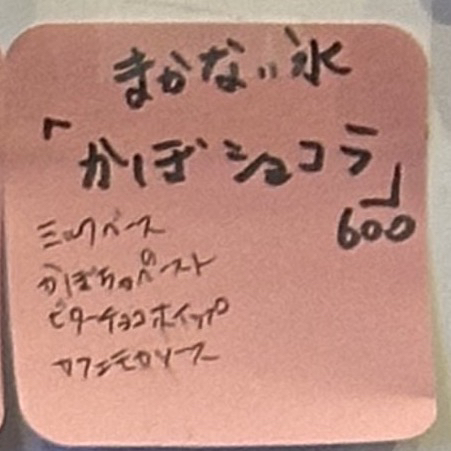 まかない氷
「かぼショコラ」
600
ミルクベース
かぼちゃのペースト
ビターチョコホイップ
カフェモカソース